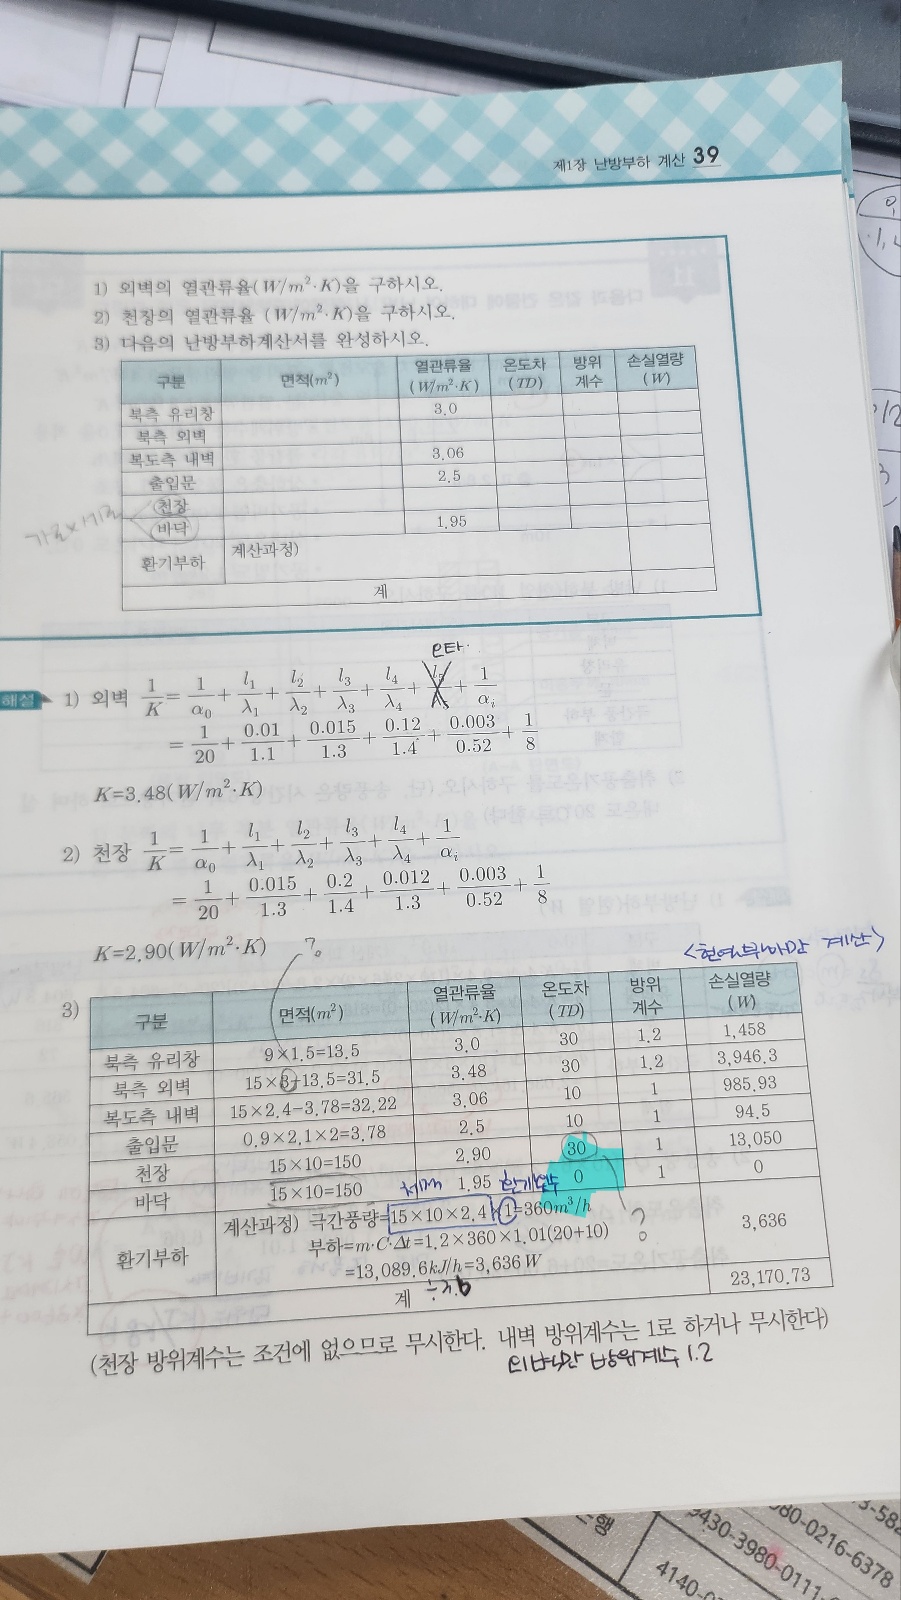 제1장 난방부하 계산 39
1) 외벽의 열관류율(W/m²·K)을 구하시오.
2) 천장의 열관류율 (W/m²·K)을 구하시오.
3) 다음의 난방부하계산서를 완성하시오.
구분 면적(m²) 열관류율 (W/m²·K) 온도차 (TD) 방위 계수 손실열량 (W)
북측 유리창 3.0
북측 외벽
복도측 내벽 3.06
출입문 2.5
천장
가로×세로
바닥 1.95
환기부하 계산과정)
계
오타.
해설 1) 외벽 1/K = 1/α₀ + l₁/λ₁ + l₂/λ₂ + l₃/λ₃ + l₄/λ₄ + l₅/λ₅ + 1/αᵢ
= 1/20 + 0.01/1.1 + 0.015/1.3 + 0.12/1.4 + 0.003/0.52 + 1/8
K=3.48(W/m²·K)
2) 천장 1/K = 1/α₀ + l₁/λ₁ + l₂/λ₂ + l₃/λ₃ + l₄/λ₄ + 1/αᵢ
= 1/20 + 0.015/1.3 + 0.2/1.4 + 0.012/1.3 + 0.003/0.52 + 1/8
K=2.90(W/m²·K) ?
<현열부하만 계산>
3) 구분 면적(m²) 열관류율 (W/m²·K) 온도차 (TD) 방위 계수 손실열량 (W)
북측 유리창 9×1.5=13.5 3.0 30 1.2 1,458
북측 외벽 15×3-13.5=31.5 3.48 30 1.2 3,946.3
복도측 내벽 15×2.4-3.78=32.22 3.06 10 1 985.93
출입문 0.9×2.1×2=3.78 2.5 10 1 94.5
천장 15×10=150 2.90 30 1 13,050
바닥 15×10=150 1.95 0 1 0
체적 환기횟수
환기부하 계산과정) 극간풍량=15×10×2.4×1=360m³/h
부하=m·C·Δt=1.2×360×1.01(20+10) ?
=13,089.6kJ/h=3,636W 3,636
÷3.6
계 23,170.73
(천장 방위계수는 조건에 없으므로 무시한다. 내벽 방위계수는 1로 하거나 무시한다)
외벽만 방위계수 1.2
080-0216-6378
9430-3980-0111-